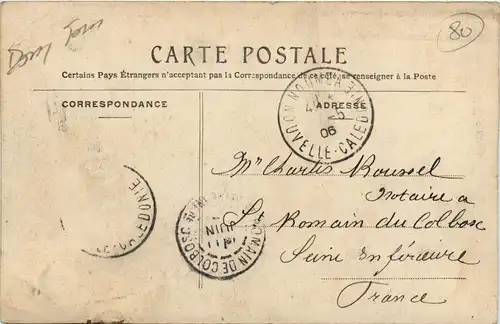 Dom Tom
80
CARTE POSTALE
Certains Pays Étrangers n'acceptant pas la Correspondance de ce côté, se renseigner à la Poste
CORRESPONDANCE
ADRESSE
NOUMEA
NOUVELLE-CALEDONIE
5
06
Mr Charles Roussel
notaire à
St Romain du Colbosc
Seine Inférieure
France
CALEDONIE
ROMAIN DE COLBOSC
JUIN